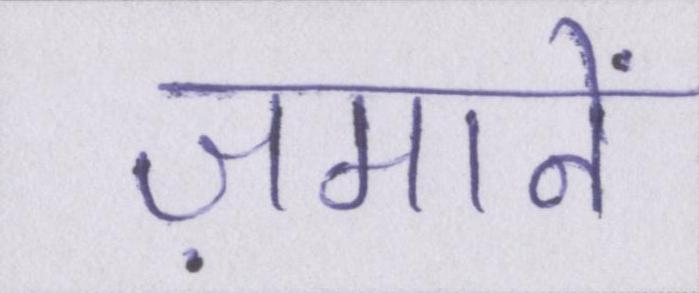 ज़मानें